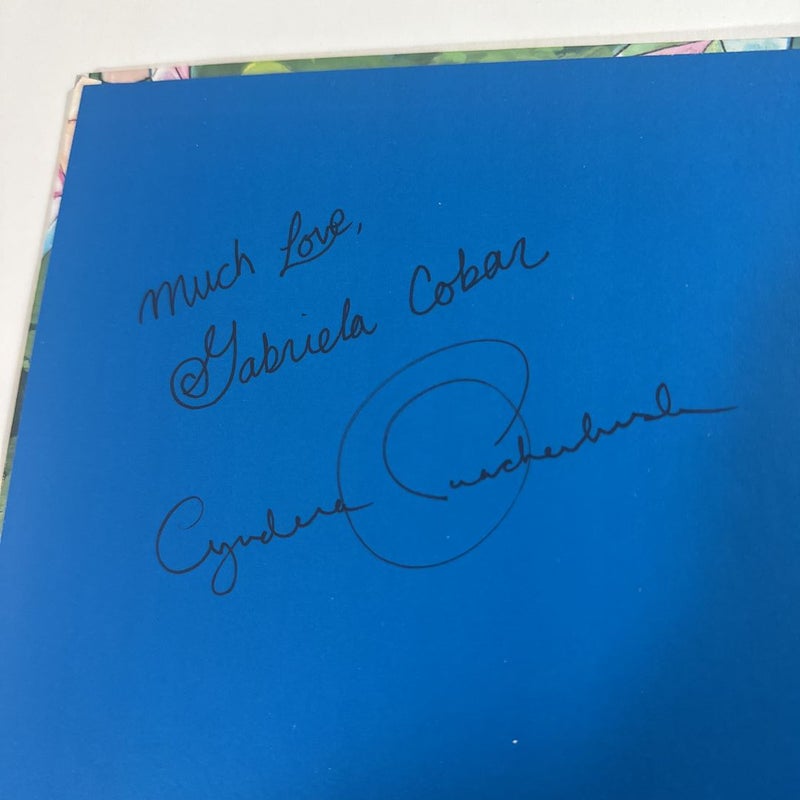 much Love,
Gabriela Cobar
Cyndera Quackenbush